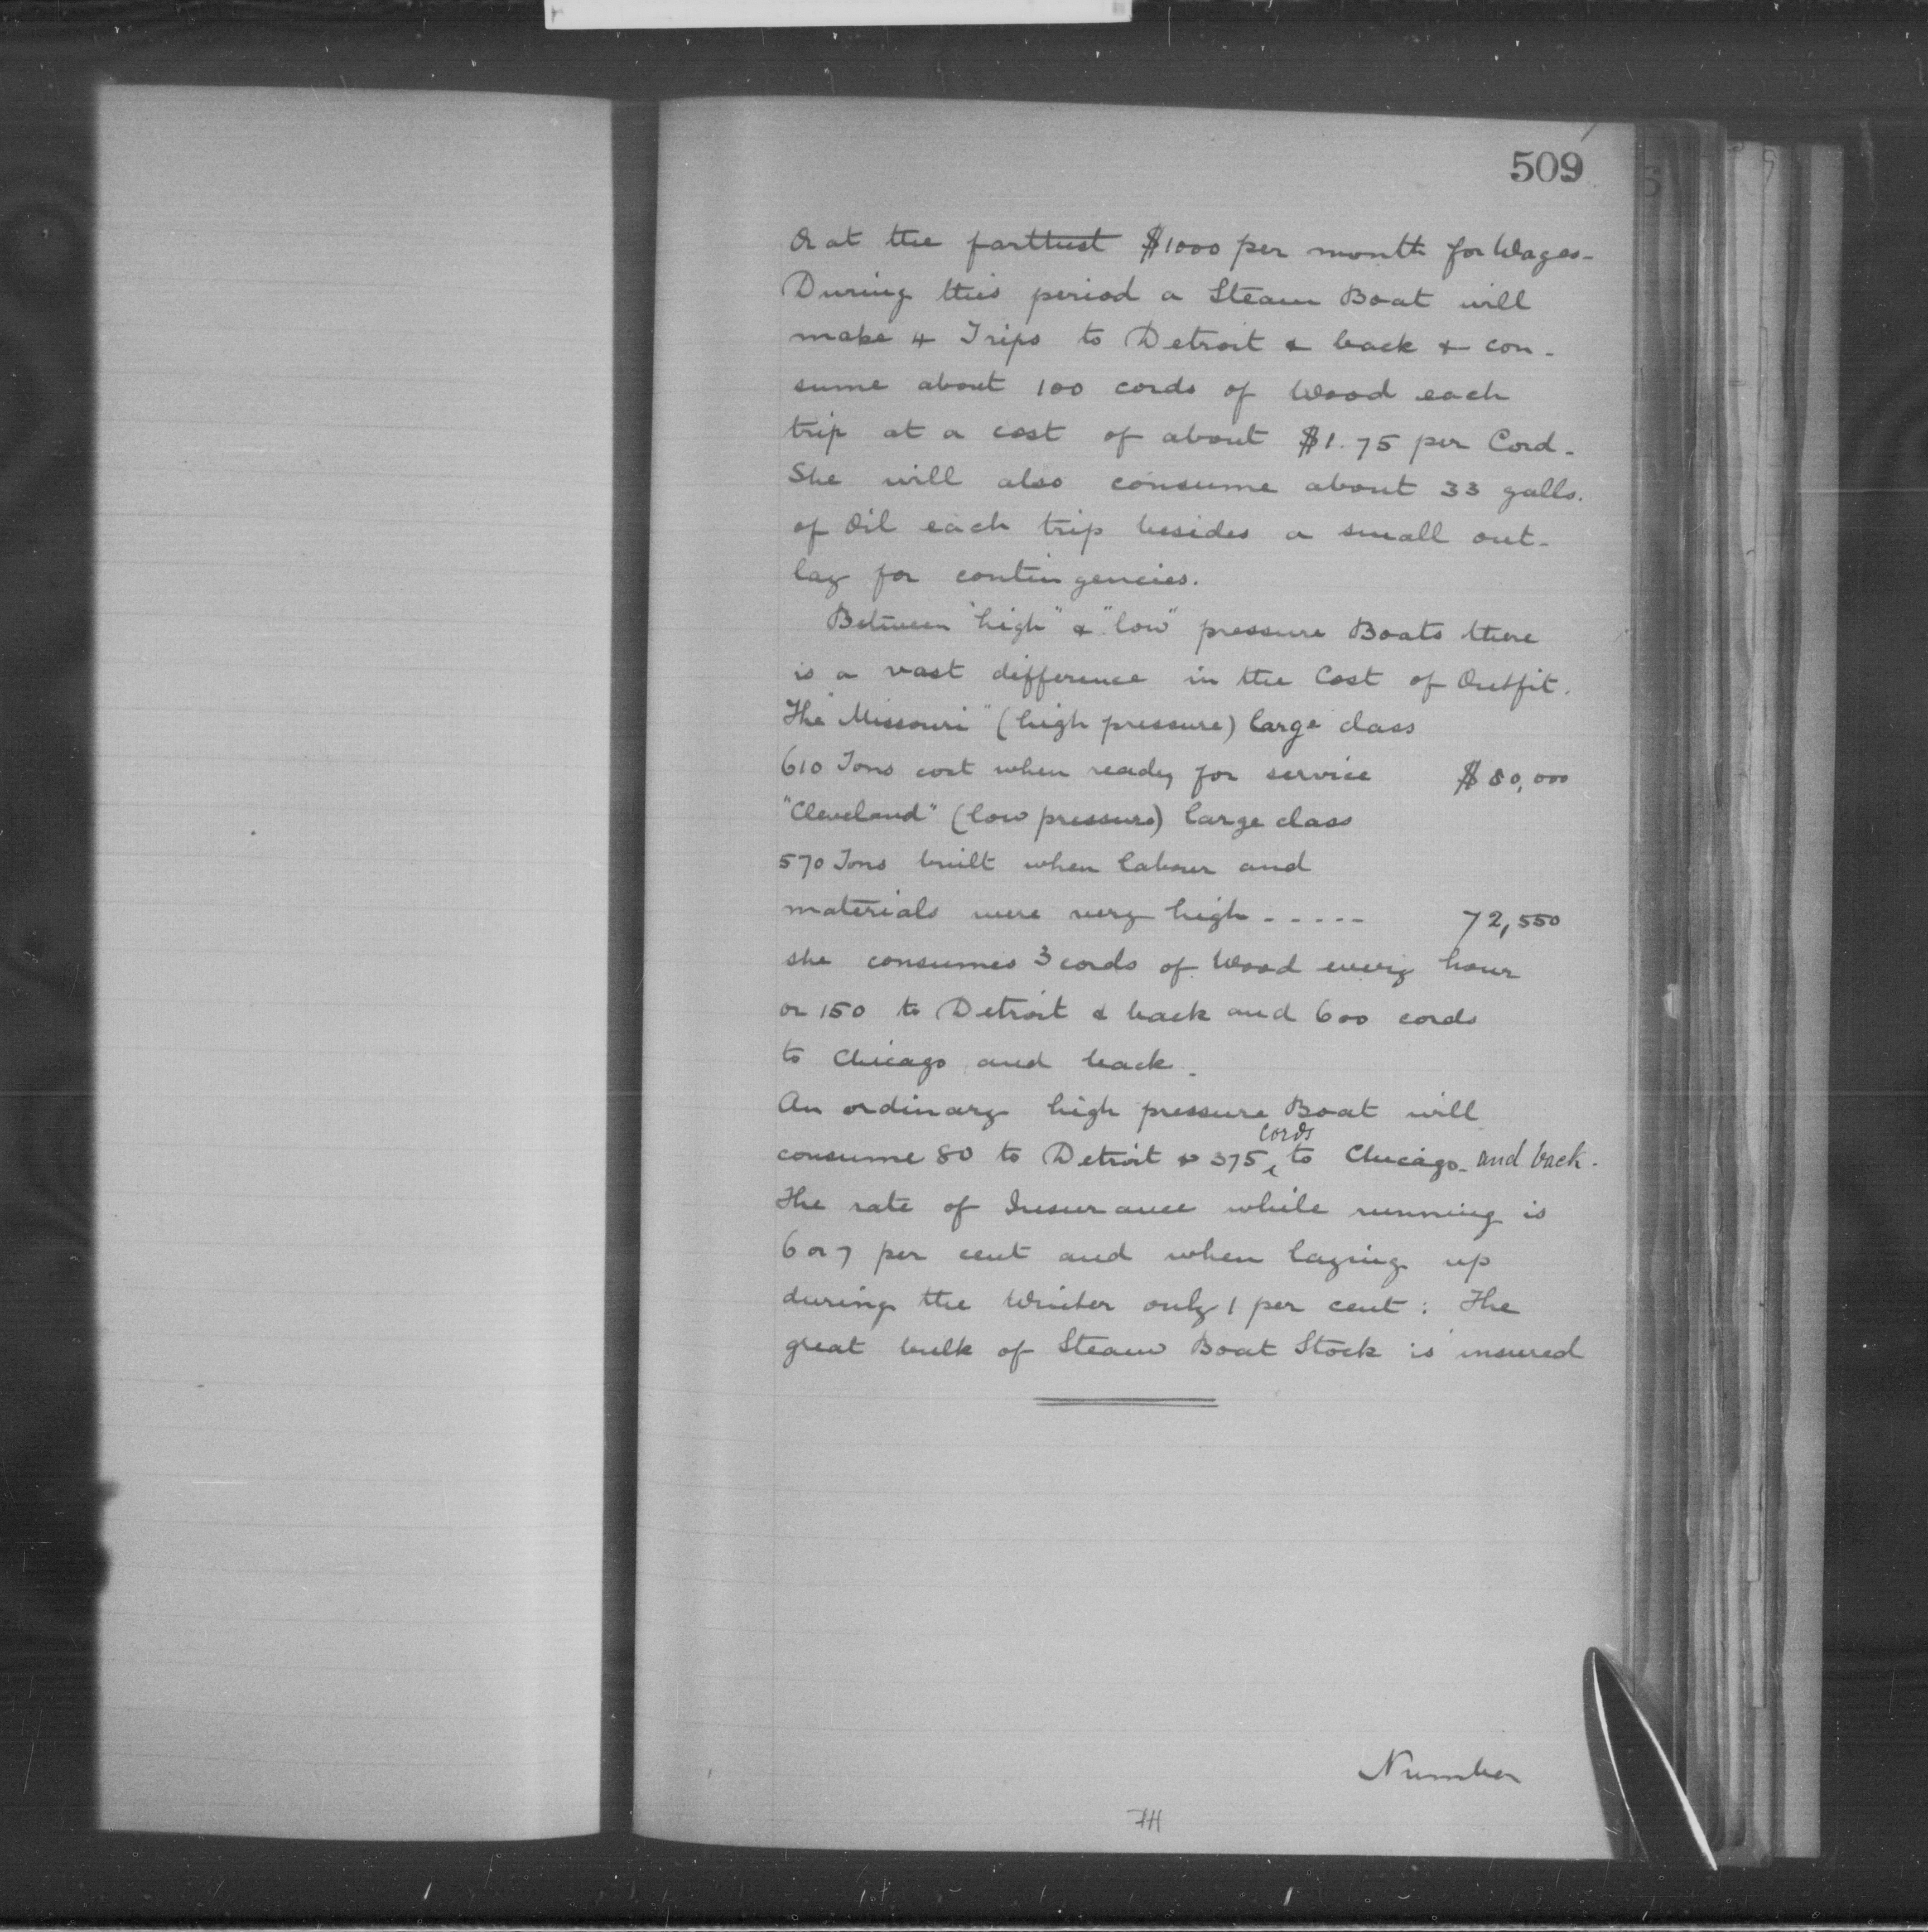 509
Or at the farthest $1000 per month for Wages-
During this period a Steam Boat will
make 4 Trips to Detroit & back & con-
sume about 100 cords of Wood each
trip at a cost of about $1.75 per Cord-
She will also consume about 33 galls.
of Oil each trip besides a small out-
lay for contingencies.
Between "high" & "low" pressure Boats there
is a vast difference in the Cost of Outfit.
The "Missouri" (high pressure) large class
610 Tons cost when ready for service $80,000
"Cleveland" (low pressure) large class
570 Tons built when labour and
materials were very high ----- 72,550
she consumes 3 cords of Wood every hour
or 150 to Detroit & back and 600 cords
to Chicago and back.
An ordinary high pressure Boat will
consume 80 to Detroit & 375 cords to Chicago- and back.
The rate of Insurance while running is
6 or 7 per cent and when laying up
during the Winter only 1 per cent: The
great bulk of Steam Boat Stock is insured
Number